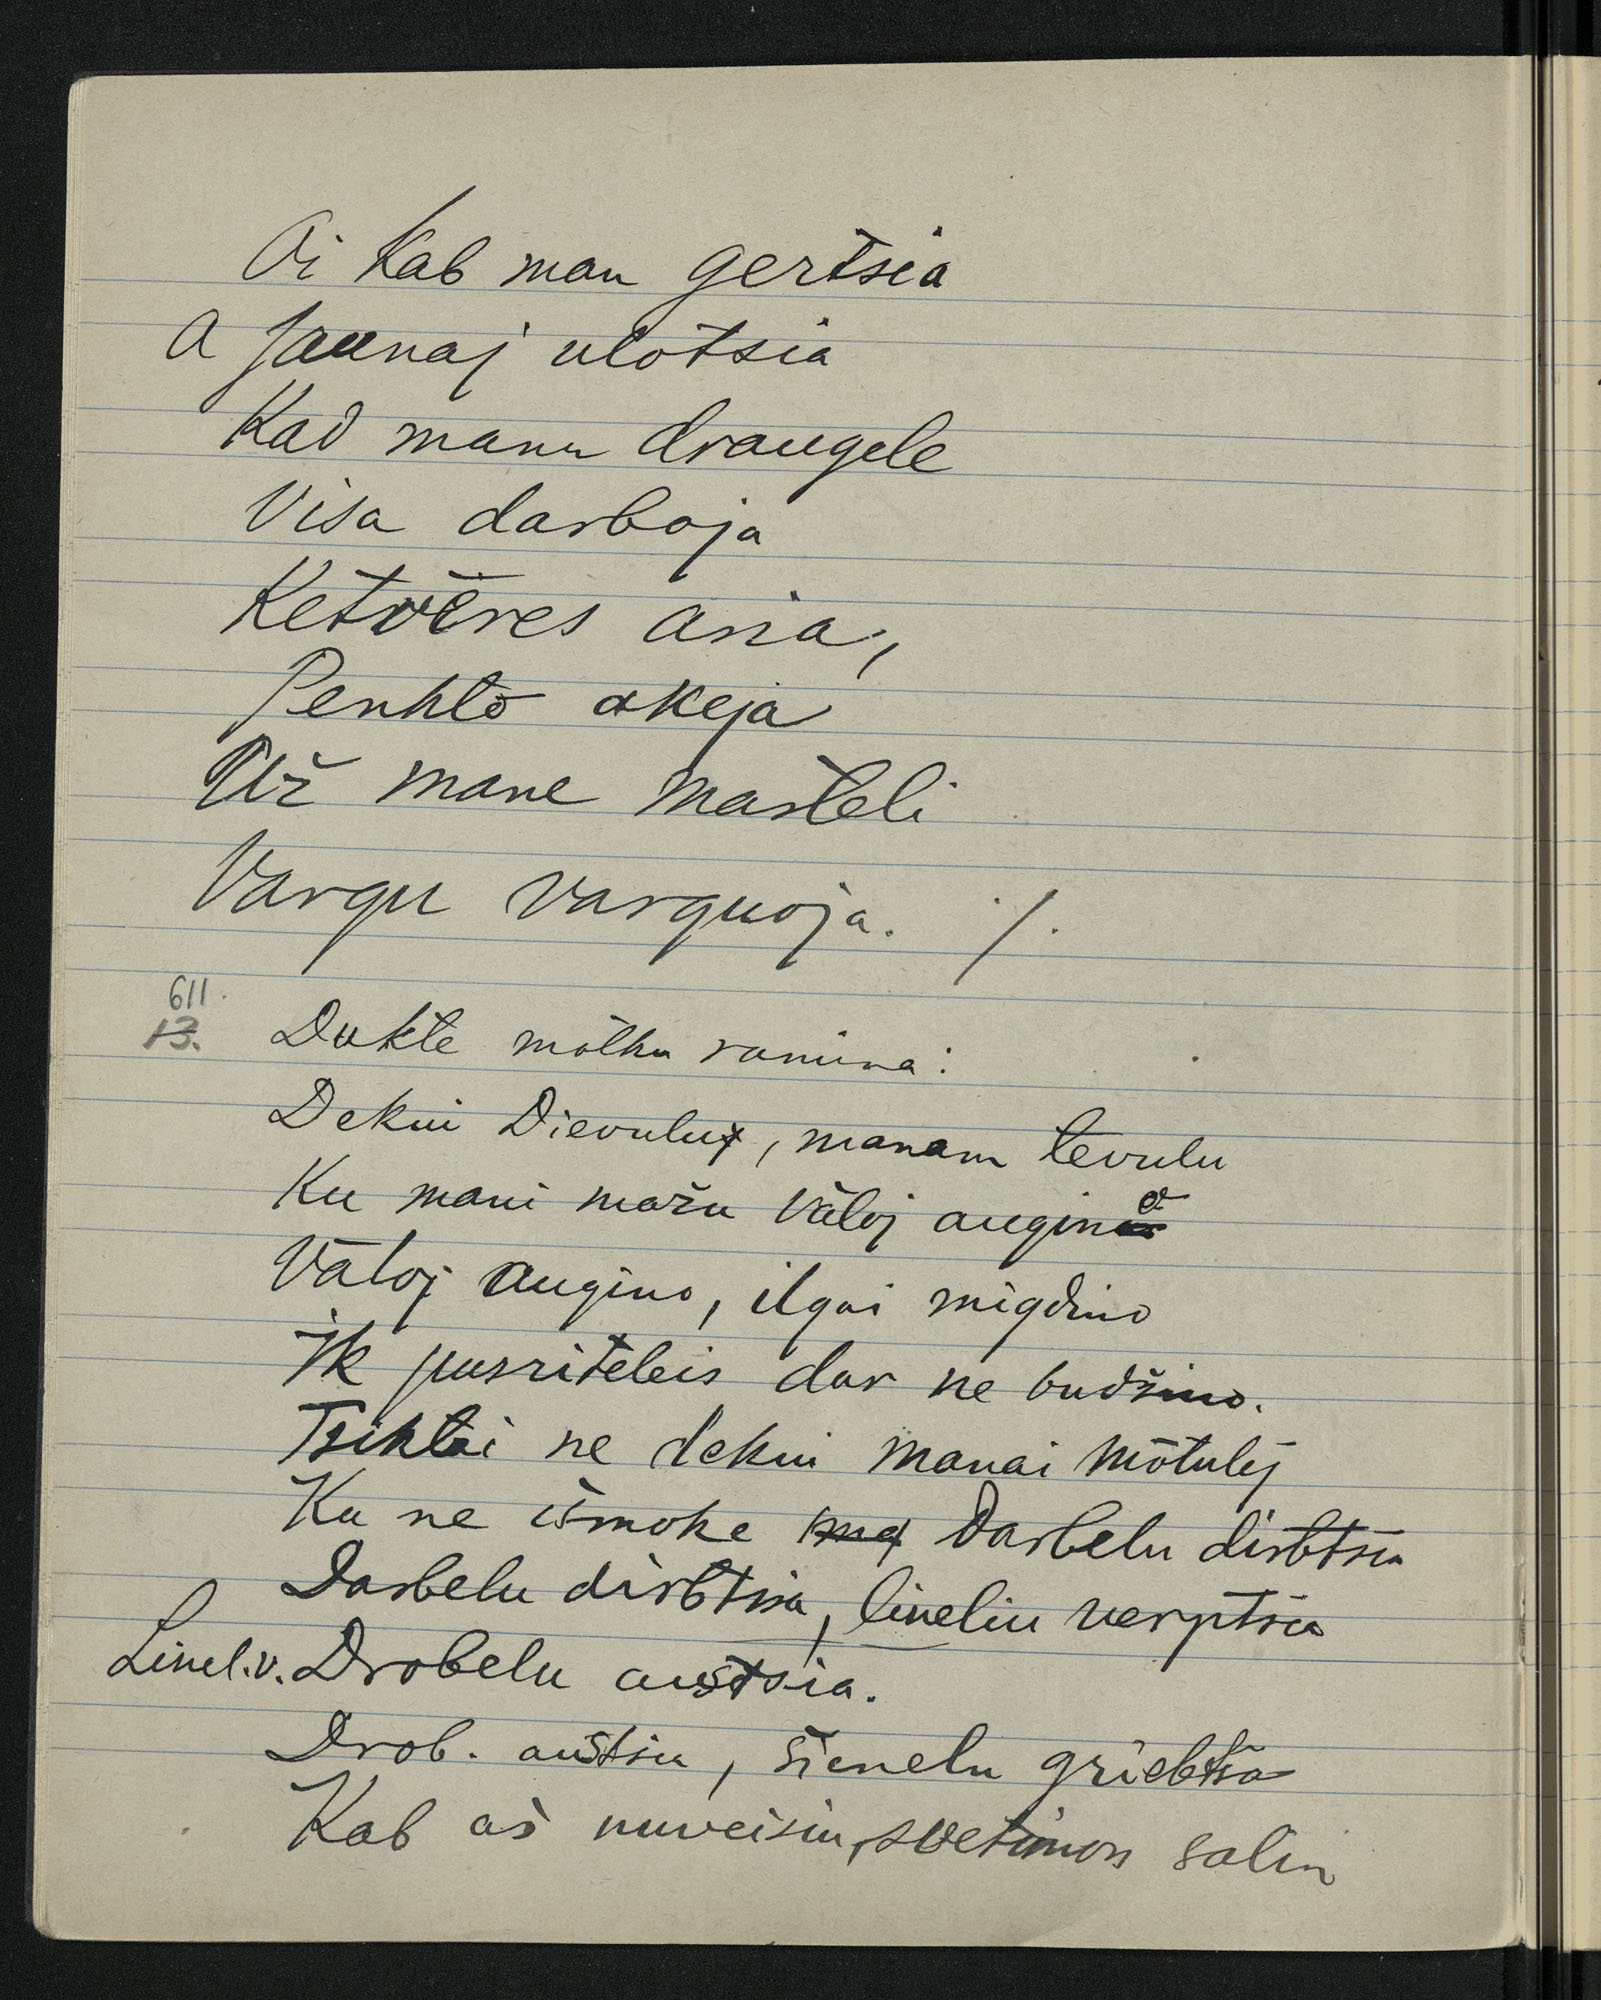 Oi kab man gertsia
A Jaunaj ulotsia
Kad manu draugele
Visa darboja
Ketvēres aria,
Penktō akeja
Už mane marteli
Vargu varguoja. ·/.
611.
13. Dukte mōtku ramina:
Dekui Dievuluy, manam tevulu
Ku mani mažu vāloj augino
Vāloj augino, ilgai migdino
Ik pusriteleis dar ne budžino.
Tsiktai ne dekui manai mōtulej
Ku ne išmoke Darbelu dirbtsia
Darbelu dirbtsia, lineliu verptsia
Linel.v. Drobelu austsia.
Drob. austsia, šienelu griebtsa
Kab aš nuveisiu, svetimon salin